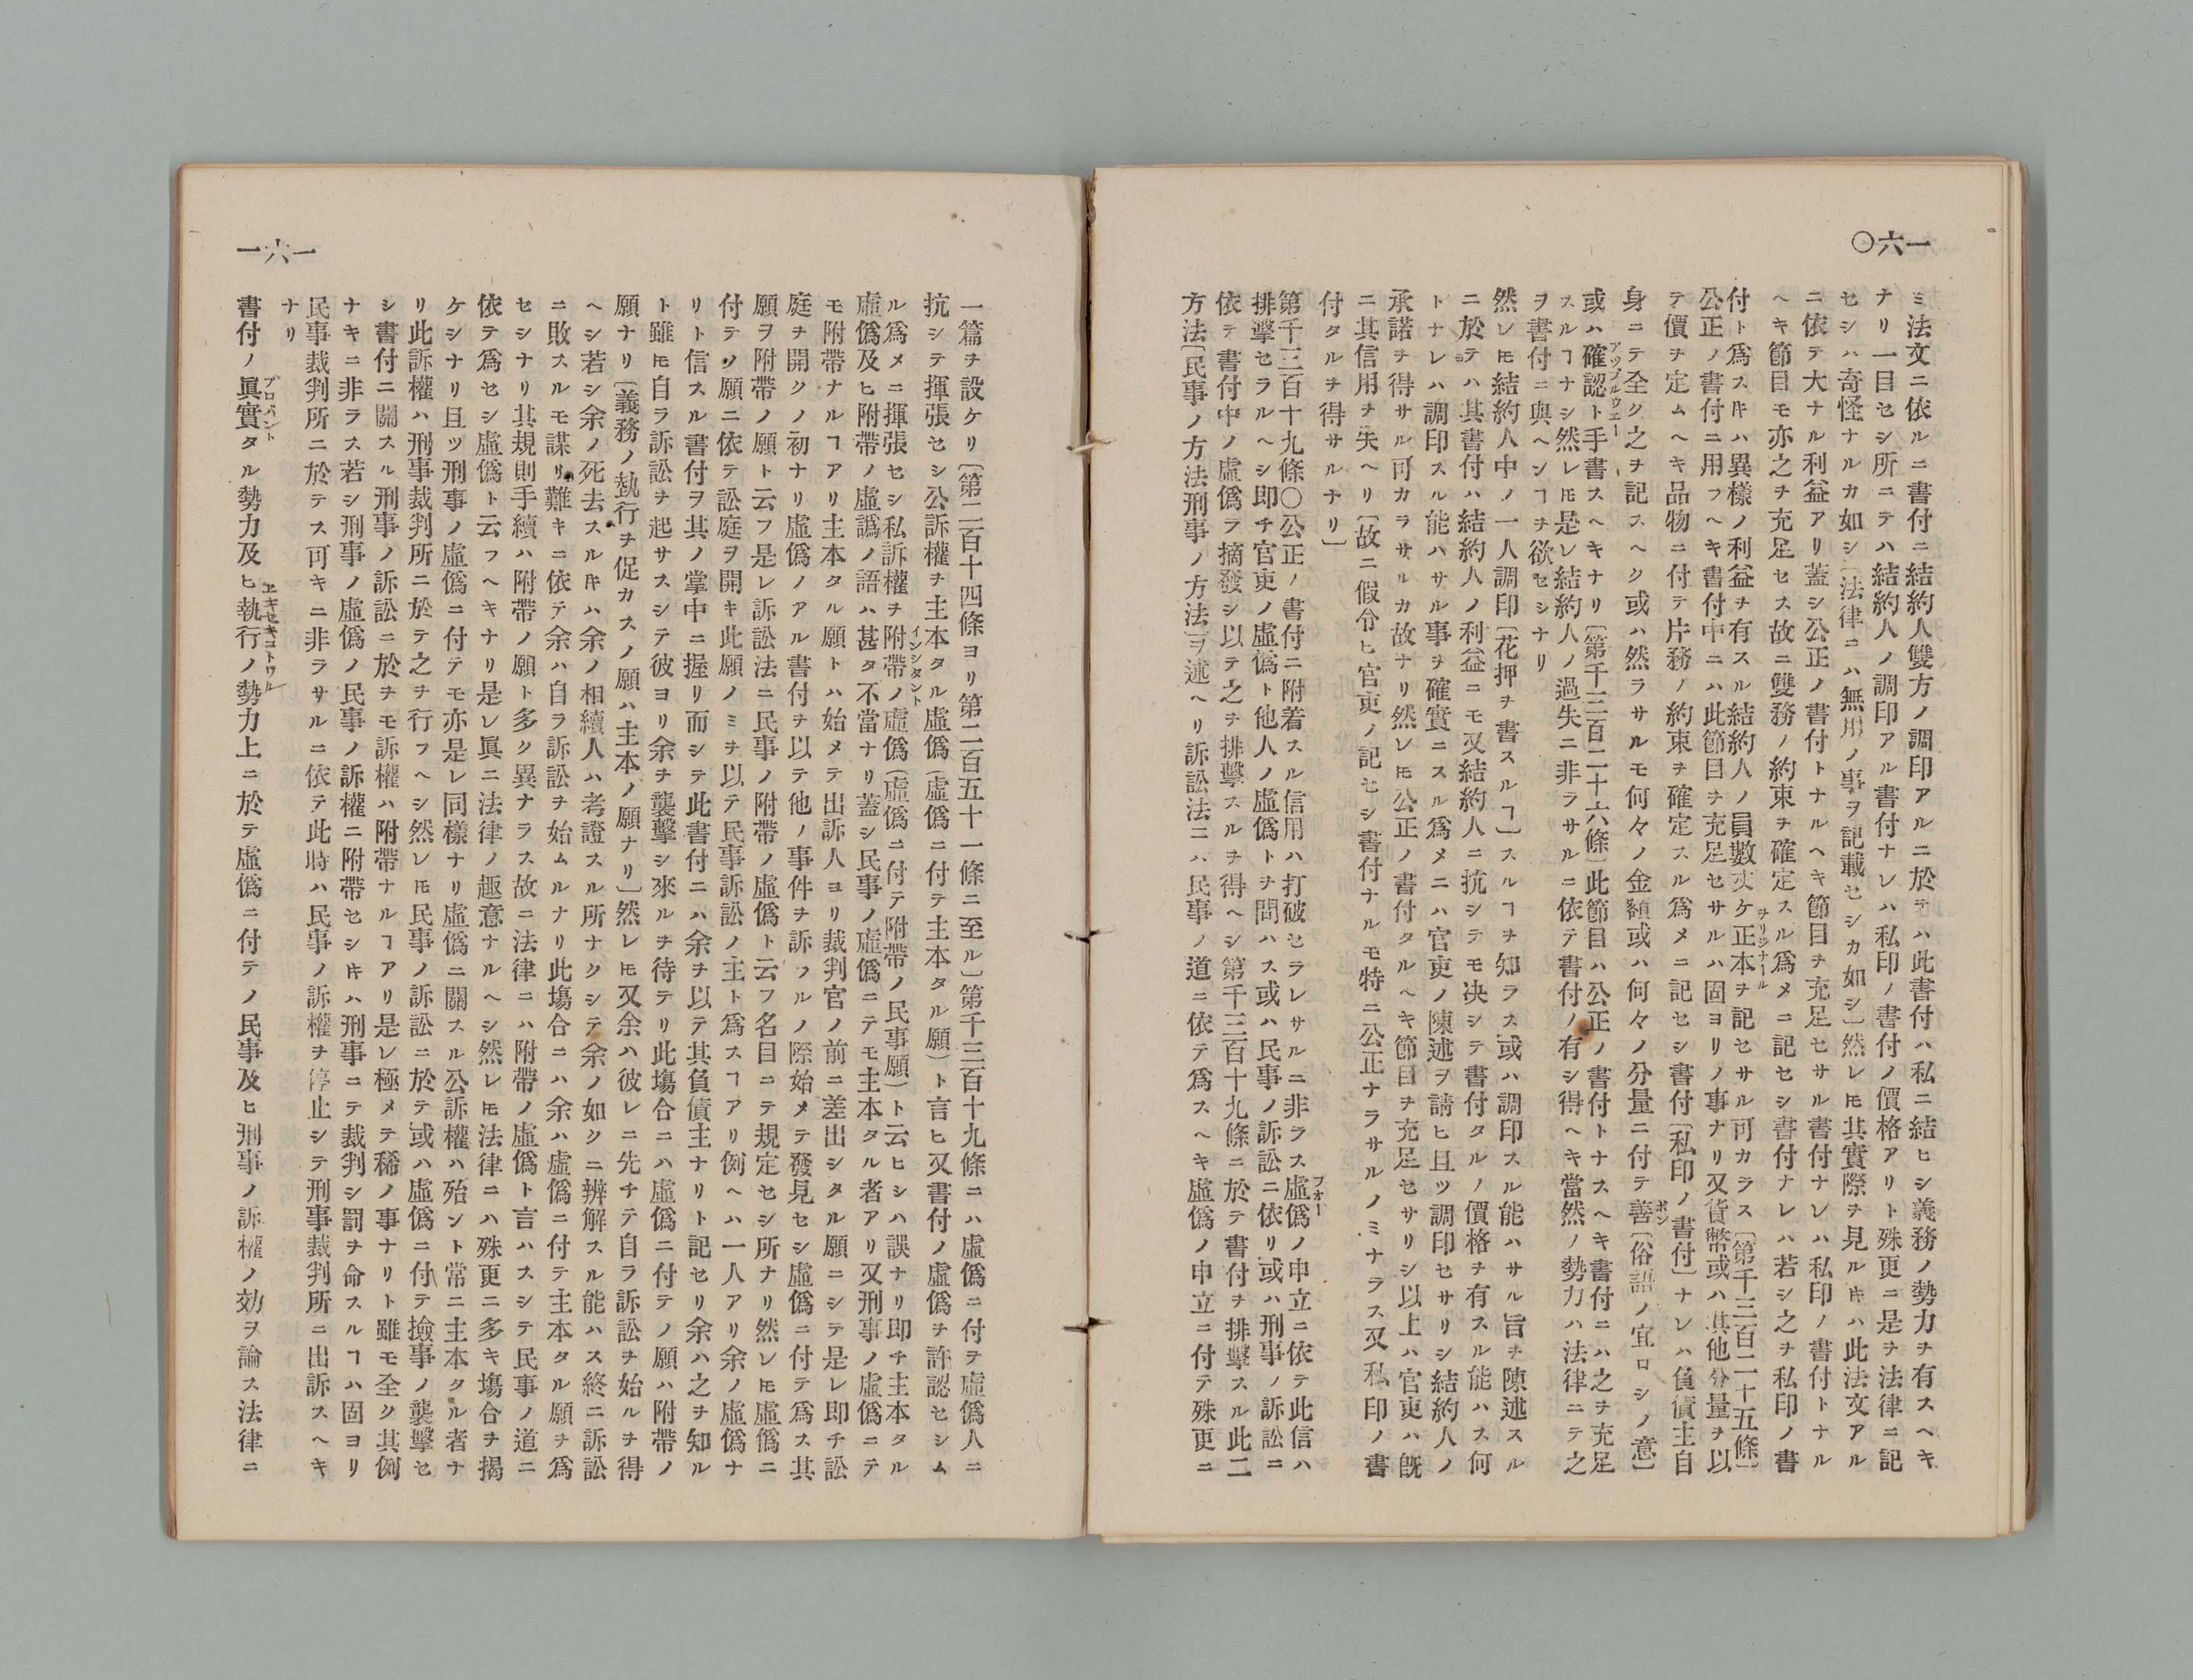 一六〇
ミ法文ニ依ルニ書付ニ結約人雙方ノ調印アルニ於テハ此書付ハ私ニ結ヒシ義務ノ勢力ヲ有スヘキ
ナリ一目セシ所ニテハ結約人ノ調印アル書付ナレハ私印ノ書付ノ價格アリト殊更ニ是ヲ法律ニ記
セシハ奇怪ナルカ如シ〔法律ニハ無用ノ事ヲ記載セシカ如シ〕然レ𪜈其實際ヲ見ルキハ此法文アル
ニ依テ大ナル利益アリ蓋シ公正ノ書付トナルヘキ節目ヲ充足セサル書付ナレハ私印ノ書付トナル
ヘキ節目モ亦之ヲ充足セス故ニ雙務ノ約束ヲ確定スル爲メニ記セシ書付ナレハ若シ之ヲ私印ノ書
付ト爲スキハ異樣ノ利益ヲ有スル結約人ノ員數丈ケ正本ヲ記セサル可カラス〔第千三百二十五條〕
オリジナール
公正ノ書付ニ用フヘキ書付中ニハ此節目ヲ充足セサルハ固ヨリノ事ナリ又貨幣或ハ其他分量ヲ以
テ價ヲ定ムヘキ品物ニ付テ片務ノ約束ヲ確定スル爲メニ記セシ書付〔私印ノ書付〕ナレハ負債主自
身ニテ全ク之ヲ記スヘク或ハ然ラサルモ何々ノ金額或ハ何々ノ分量ニ付テ善〔俗語ノ宜ロシノ意〕
ボン
或ハ確認ト手書スヘキナリ〔第千三百二十六條〕此節目ハ公正ノ書付トナスヘキ書付ニハ之ヲ充足
アップルウエー
スルヿナシ然レ𪜈是レ結約人ノ過失ニ非ラサルニ依テ書付ノ有シ得ヘキ當然ノ勢力ハ法律ニテ之
ヲ書付ニ與ヘンヿヲ欲セシナリ
然レ𪜈結約人中ノ一人調印〔花押ヲ書スルヿ〕スルヿヲ知ラス或ハ調印スル能ハサル旨ヲ陳述スル
ニ於テハ其書付ハ結約人ノ利益ニモ又結約人ニ抗シテモ决シテ書付タルノ價格ヲ有スル能ハス何
トナレハ調印スル能ハサル事ヲ確實ニスル爲メニハ官吏ノ陳述ヲ請ヒ且ツ調印セサリシ結約人ノ
承諾ヲ得サル可カラサルカ故ナリ然レ𪜈公正ノ書付タルヘキ節目ヲ充足セサリシ以上ハ官吏ハ既
ニ其信用ヲ失ヘリ〔故ニ假令ヒ官吏ノ記セシ書付ナルモ特ニ公正ナラサルノミナラス又私印ノ書
付タルヲ得サルナリ〕
第千三百十九條〇公正ノ書付ニ附着スル信用ハ打破セラレサルニ非ラス虛僞ノ申立ニ依テ此信ハ
フオー
排擊セラルヘシ即チ官吏ノ虛僞ト他人ノ虛僞トヲ問ハス或ハ民事ノ訴訟ニ依リ或ハ刑事ノ訴訟ニ
依テ書付中ノ虛僞ヲ摘發シ以テ之ヲ排擊スルヲ得ヘシ第千三百十九條ニ於テ書付ヲ排擊スル此二
方法〔民事ノ方法刑事ノ方法〕ヲ述ヘリ訴訟法ニハ民事ノ道ニ依テ爲スヘキ虛僞ノ申立ニ付テ殊更ニ
一六一
一篇ヲ設ケリ〔第二百十四條ヨリ第二百五十一條ニ至ル〕第千三百十九條ニハ虛僞ニ付テ虛僞人ニ
抗シテ揮張セシ公訴權ヲ主本タル虛僞(虛僞ニ付テ主本タル願)ト言ヒ又書付ノ虛僞ヲ許認セシム
ル爲メニ揮張セシ私訴權ヲ附帶ノ虛僞(虛僞ニ付テ附帶ノ民事願)ト云ヒシハ誤ナリ即チ主本タル
インシダント
虛僞及ヒ附帶ノ虛譌ノ語ハ甚タ不當ナリ蓋シ民事ノ虛僞ニテモ主本タル者アリ又刑事ノ虛僞ニテ
モ附帶ナルヿアリ主本タル願トハ始メテ出訴人ヨリ裁判官ノ前ニ差出シタル願ニシテ是レ即チ訟
庭ヲ開クノ初ナリ虛僞ノアル書付ヲ以テ他ノ事件ヲ訴フルノ際始メテ發見セシ虛僞ニ付テ爲ス其
願ヲ附帶ノ願ト云フ是レ訴訟法ニ民事ノ附帶ノ虛僞ト云フ名目ニテ規定セシ所ナリ然レ𪜈虛僞ニ
付テノ願ニ依テ訟庭ヲ開キ此願ノミヲ以テ民事訴訟ノ主ト爲スヿアリ例ヘハ一人アリ余ノ虛僞ナ
リト信スル書付ヲ其ノ掌中ニ握リ而シテ此書付ニハ余ヲ以テ其負債主ナリト記セリ余ハ之ヲ知ル
ト雖𪜈自ラ訴訟ヲ起サスシテ彼ヨリ余ヲ襲擊シ來ルヲ待テリ此塲合ニハ虛僞ニ付テノ願ハ附帶ノ
願ナリ〔義務ノ執行ヲ促カスノ願ハ主本ノ願ナリ〕然レ𪜈又余ハ彼レニ先チテ自ラ訴訟ヲ始ルヲ得
ヘシ若シ余ノ死去スルキハ余ノ相續人ハ考證スル所ナクシテ余ノ如クニ辨解スル能ハス終ニ訴訟
ニ敗スルモ謀リ難キニ依テ余ハ自ラ訴訟ヲ始ムルナリ此塲合ニハ余ハ虛僞ニ付テ主本タル願ヲ爲
セシナリ其規則手續ハ附帶ノ願ト多ク異ナラス故ニ法律ニハ附帶ノ虛僞ト言ハスシテ民事ノ道ニ
依テ爲セシ虛僞ト云フヘキナリ是レ眞ニ法律ノ趣意ナルヘシ然レ𪜈法律ニハ殊更ニ多キ塲合ヲ揭
ケシナリ且ツ刑事ノ虛僞ニ付テモ亦是レ同樣ナリ虛僞ニ關スル公訴權ハ殆ント常ニ主本タル者ナ
リ此訴權ハ刑事裁判所ニ於テ之ヲ行フヘシ然レ𪜈民事ノ訴訟ニ於テ或ハ虛僞ニ付テ撿事ノ襲擊セ
シ書付ニ關スル刑事ノ訴訟ニ於ヲモ訴權ハ附帶ナルヿアリ是レ極メテ稀ノ事ナリト雖モ全ク其例
ナキニ非ラス若シ刑事ノ虛僞ノ民事ノ訴權ニ附帶セシキハ刑事ニテ裁判シ罰ヲ命スルヿハ固ヨリ
民事裁判所ニ於テス可キニ非ラサルニ依テ此時ハ民事ノ訴權ヲ停止シテ刑事裁判所ニ出訴スヘキ
ナリ
書付ノ眞實タル勢力及ヒ執行ノ勢力上ニ於テ虛僞ニ付テノ民事及ヒ刑事ノ訴權ノ効ヲ論ス法律ニ
プロバント
エキセキコトワル